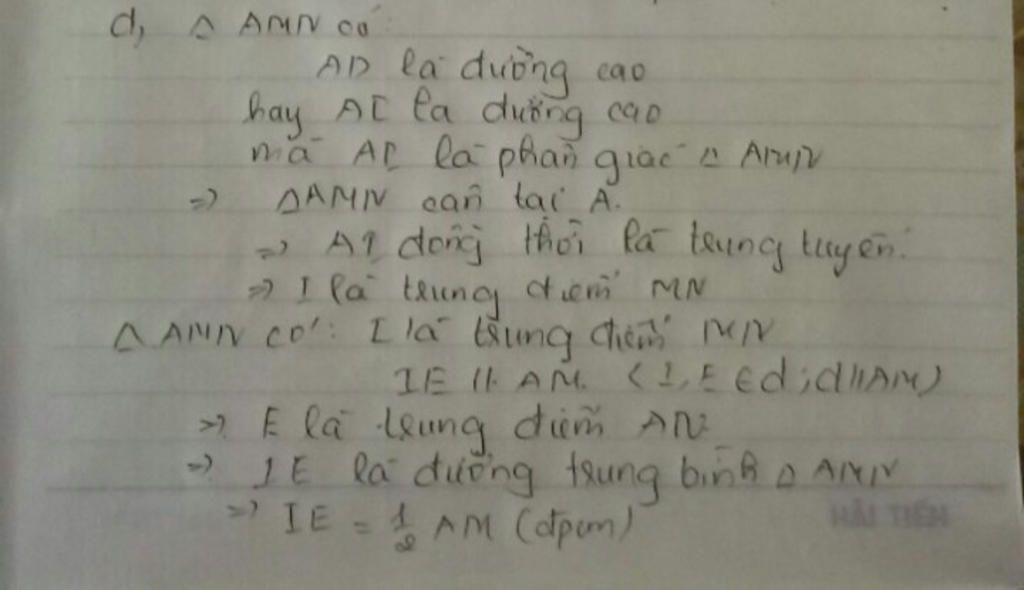 d, △ AMN có
AD là đường cao
hay AI là đường cao
mà AI là phân giác △ AMN
=> △AMN cân tại A.
=> AI đồng thời là trung tuyến.
=> I là trung điểm MN
△ AMN có: I là trung điểm MN
IE // AM. (I, E ∈ d ; d // AM)
=> E là trung điểm AN
=> IE là đường trung bình △ AMN
=> IE = 1/2 AM (đpcm)
HẢI TIẾN